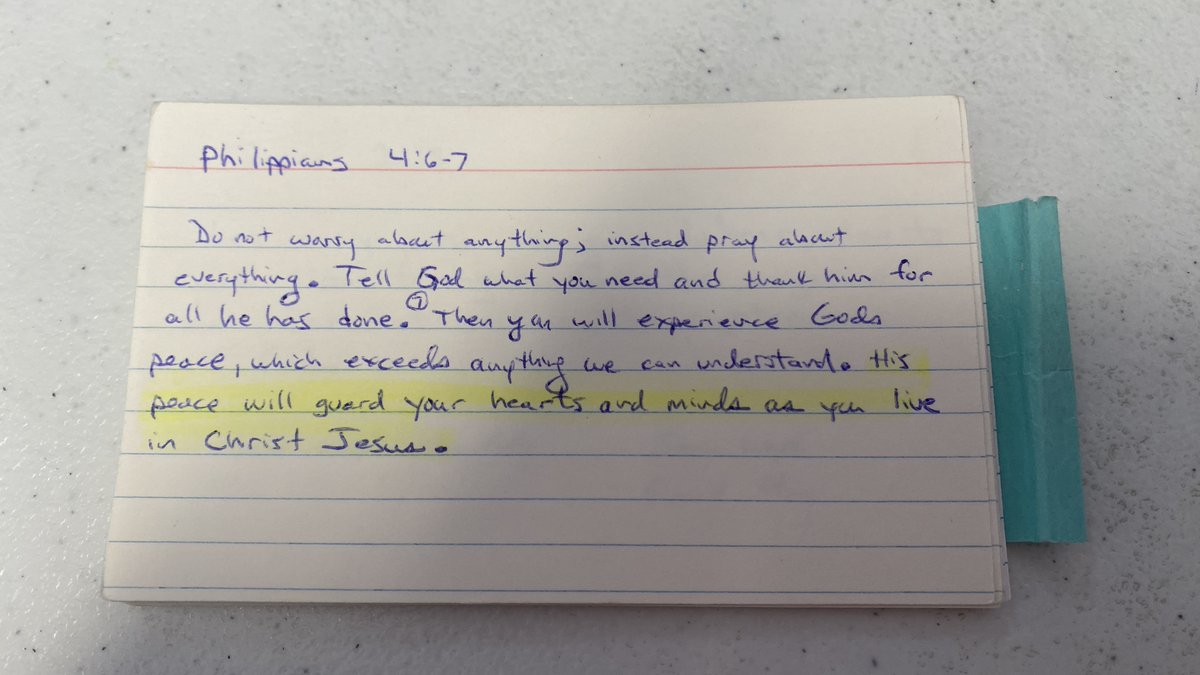 Philippians 4:6-7
Do not worry about anything; instead pray about
everything. Tell God what you need and thank him for
all he has done. ⑦ Then you will experience Gods
peace, which exceeds anything we can understand. His
peace will guard your hearts and minds as you live
in Christ Jesus.